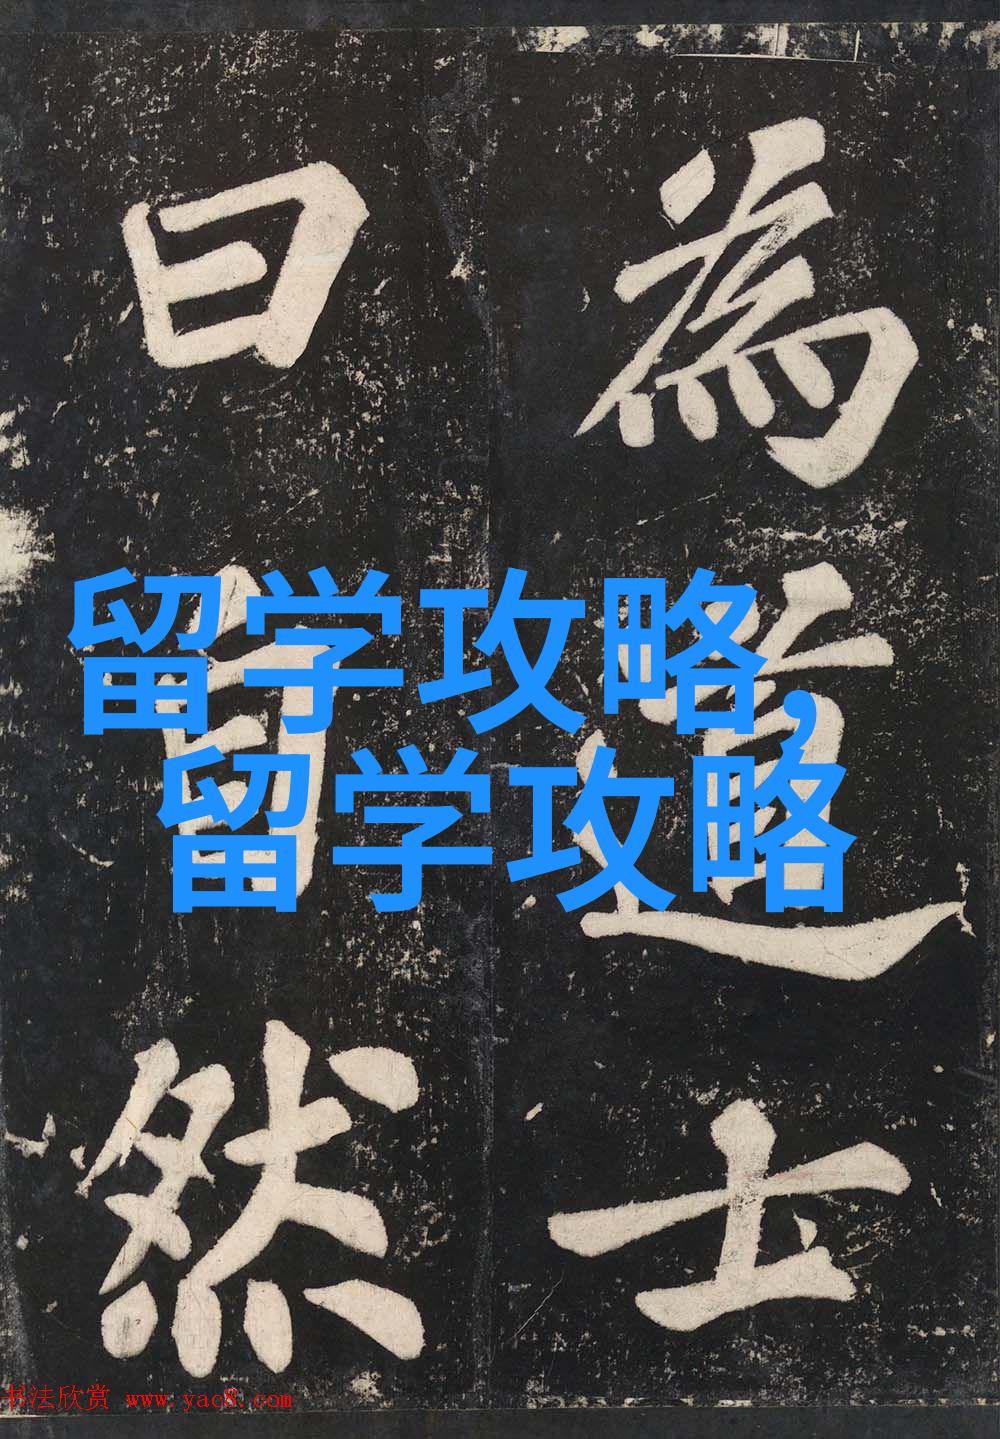 為道士
曰自然
留学攻略,
留学攻略
书法欣赏 www.yac8.com